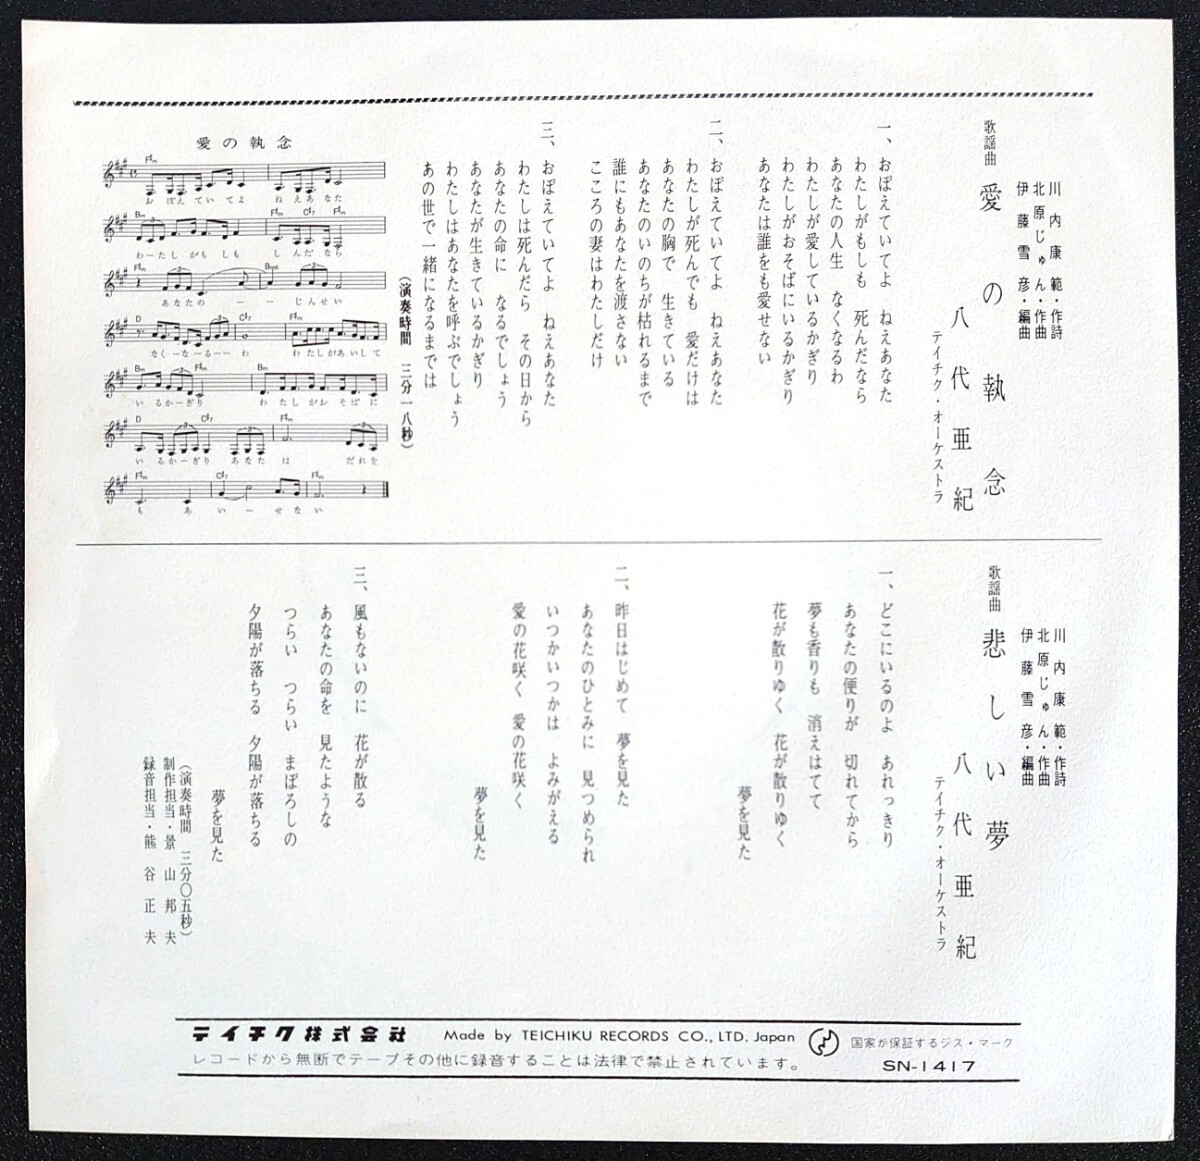 川内康範・作詩
北原じゅん・作曲
伊藤雪彦・編曲
歌謡曲 愛の執念
八代亜紀
テイチク・オーケストラ
一、おぼえていてよ ねえあなた
わたしがもしも 死んだなら
あなたの人生 なくなるわ
わたしが愛しているかぎり
わたしがおそばにいるかぎり
あなたは誰をも愛せない
二、おぼえていてよ ねえあなた
わたしが死んでも 愛だけは
あなたの胸で 生きている
あなたのいのちが枯れるまで
誰にもあなたを渡さない
こころの妻はわたしだけ
三、おぼえていてよ ねえあなた
わたしは死んだら その日から
あなたの命に なるでしょう
あなたが生きているかぎり
わたしはあなたを呼ぶでしょう
あの世で一緒になるまでは
(演奏時間 三分一八秒)
愛の執念
F♯m
おぼえていてよ ねえあなた
Bm F♯m C♯7 F♯m
わーたしがもしも しんだなら
F♯m Bm6
あなたのーー じんせい
D C♯7 F♯m
なくーなーるーーわ わたしがあいして
Bm F♯m Bm F♯m
いるかーぎり わたしがおそばに
D C♯7 F♯m D
いるかーぎり あなたは だれを
F♯m C♯7 F♯m
もあいーせない
川内康範・作詩
北原じゅん・作曲
伊藤雪彦・編曲
歌謡曲 悲しい夢
八代亜紀
テイチク・オーケストラ
一、どこにいるのよ あれっきり
あなたの便りが 切れてから
夢も香りも 消えはてて
花が散りゆく 花が散りゆく
夢を見た
二、昨日はじめて 夢を見た
あなたのひとみに 見つめられ
いつかいつかは よみがえる
愛の花咲く 愛の花咲く
夢を見た
三、風もないのに 花が散る
あなたの命を 見たような
つらい つらい まぼろしの
夕陽が落ちる 夕陽が落ちる
夢を見た
(演奏時間 三分〇五秒)
制作担当・景山邦夫
録音担当・熊谷正夫
テイチク株式会社 Made by TEICHIKU RECORDS CO., LTD. Japan 国家が保証するジス・マーク
レコードから無断でテープその他に録音することは法律で禁止されています。 SN-1417